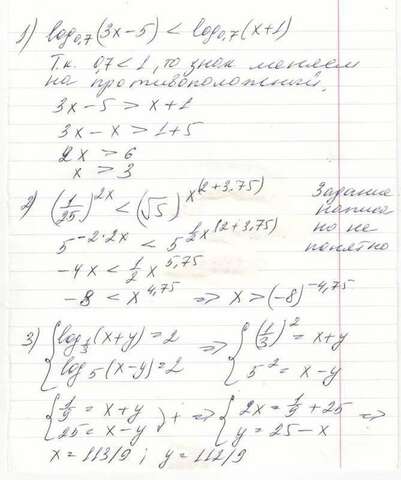 1) log₀,₇(3x-5) < log₀,₇(x+1)
Т.к. 0,7<1, то знак меняем
на противоположный.
3x-5 > x+1
3x-x > 1+5
2x > 6
x > 3
2) (1/25)^2x < (√5)^x^(2+3.75)
Задание
написа
но не
понятно
5^-2·2x < 5^½x^(2+3,75)
-4x < ½x^5,75
-8 < x^4,75 => x > (-8)^-4,75
3) { log_⅓(x+y) = 2 => { (1/3)^2 = x+y
{ log₅(x-y) = 2 { 5^2 = x-y
{ 1/9 = x+y ) + => { 2x = 1/9 + 25 =>
{ 25 = x-y { y = 25-x
x = 113/9 ; y = 112/9